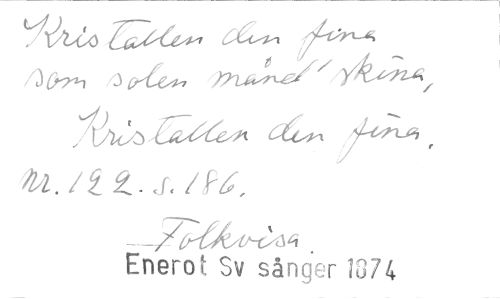 Kristallen den fina
som solen månd' skina,
Kristallen den fina.
nr. 122. s. 186.
Folkvisa.
Enerot Sv sånger 1874